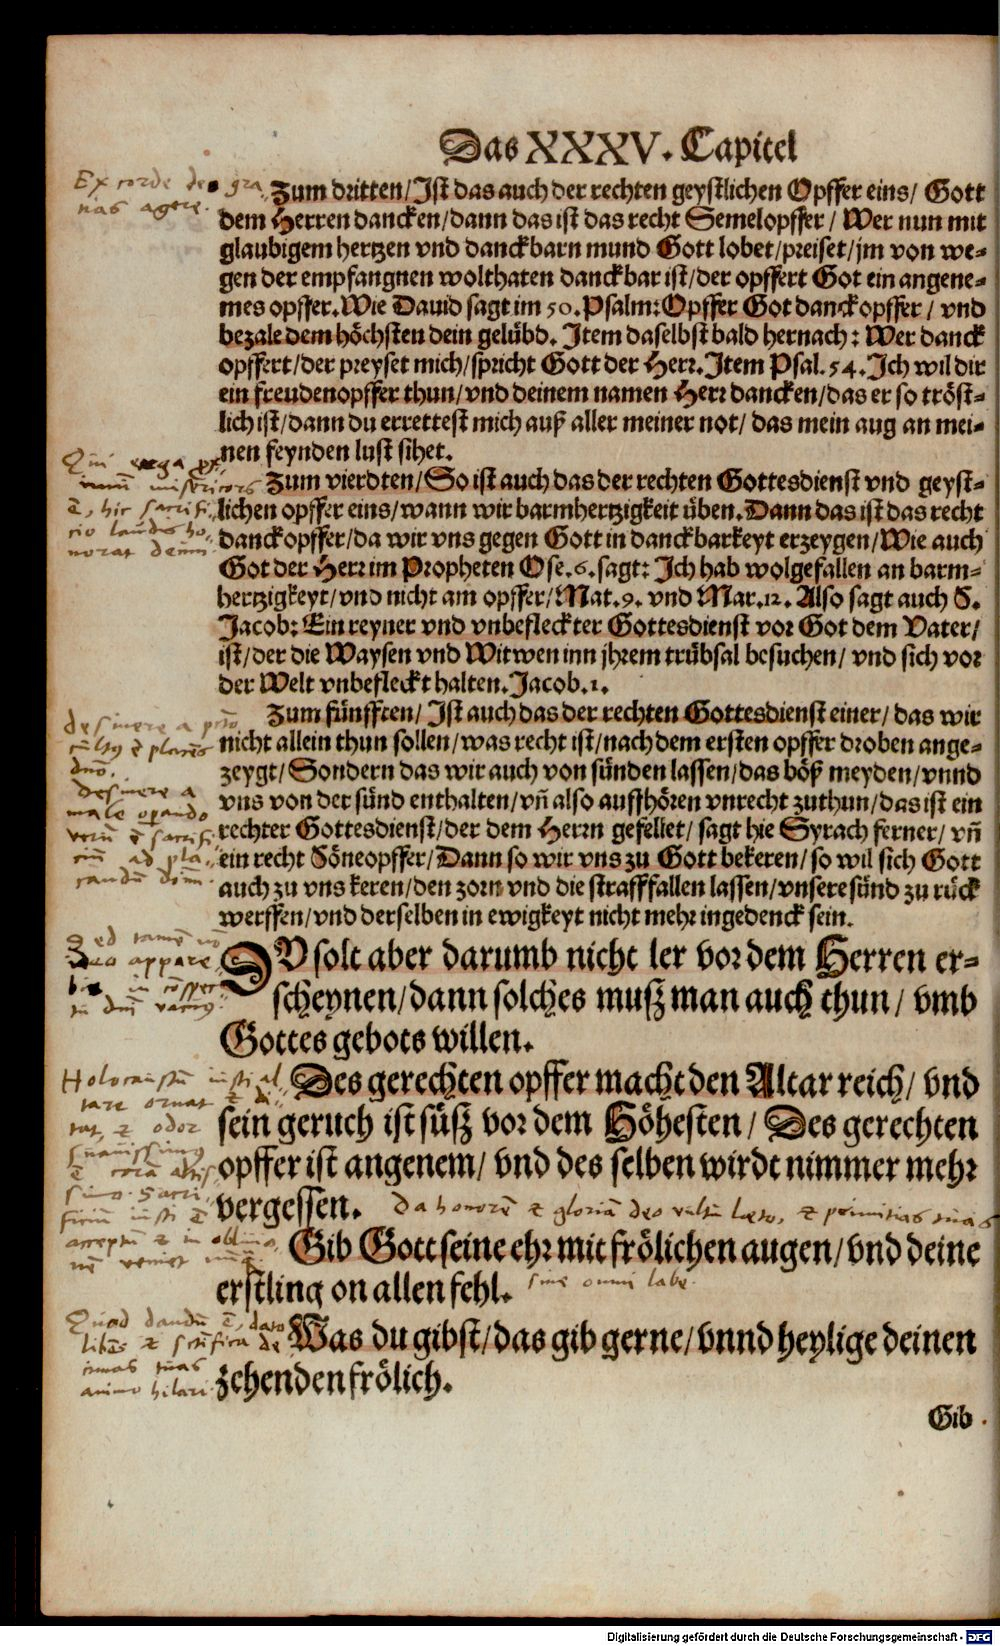 Das XXXV. Capitel
Ex corde deo gra
tias agere.
Zum dritten/ Ist das auch der rechten geystlichen Opffer eins/ Gott
dem Herren dancken/dann das ist das recht Semelopffer/ Wer nun mit
glaubigem hertzen vnd danckbarn mund Gott lobet/preiset/jm von we-
gen der empfangnen wolthaten danckbar ist/der opffert Got ein angene-
mes opffer. Wie Dauid sagt im 50. Psalm: Opffer Got danckopffer/ vnd
bezale dem höchsten dein gelübd. Item daselbst bald hernach: Wer danck
opffert/der preyset mich/spricht Gott der Herr. Item Psal. 54. Ich wil dir
ein freudenopffer thun/vnd deinem namen Herr dancken/das er so tröst-
lich ist/dann du errettest mich auß aller meiner not/ das mein aug an mei-
nen feynden lust sihet.
Qui erga
misericors
ē, hic sacrifi-
cio laudis ho-
norat
Zum vierdten/ So ist auch das der rechten Gottesdienst vnd geyst-
lichen opffer eins/wann wir barmhertzigkeit üben. Dann das ist das recht
danckopffer/da wir vns gegen Gott in danckbarkeyt erzeygen/Wie auch
Got der Herr im Propheten Ose. 6. sagt: Ich hab wolgefallen an barm-
hertzigkeyt/vnd nicht am opffer/Mat. 9. vnd Mar. 12. Also sagt auch S.
Jacob: Ein reyner vnd vnbefleckter Gottesdienst vor Got dem Vater/
ist/der die Waysen vnd Witwen inn jhrem trübsal besuchen/ vnd sich vor
der Welt vnbefleckt halten. Jacob. 1.
desinere a pctō
cultus ē placēs
dnō.
desinere a
male operando
verū ē sacrifi-
ciū ad pla-
candū dnm.
Zum fünfften/ Ist auch das der rechten Gottesdienst einer/ das wir
nicht allein thun sollen/was recht ist/nach dem ersten opffer droben ange-
zeygt/ Sondern das wir auch von sünden lassen/das böß meyden/vnnd
vns von der sünd enthalten/vñ also auffhören vnrecht zuthun/das ist ein
rechter Gottesdienst/der dem Herrn gefellet/ sagt hie Syrach ferner/ vñ
ein recht Söneopffer/Dann so wir vns zu Gott bekeren/so wil sich Gott
auch zu vns keren/den zorn vnd die strafffallen lassen/vnsere sünd zu rück
werffen/vnd derselben in ewigkeyt nicht mehr ingedenck sein.
Sed tamē nō
appare
bis in cōspec
tu dni vacuus.
DV solt aber darumb nicht ler vor dem Herren er-
scheynen/dann solches muß man auch thun/ vmb
Gottes gebots willen.
Holocaustū iusti al-
tare ornat et di-
tat, et odor
suauissimus
ē corā altis
simo. Sacri-
ficiū iusti ē
acceptū et in obliuio-
nē veniet
Des gerechten opffer macht den Altar reich/ vnd
sein geruch ist süß vor dem Höhesten/ Des gerechten
opffer ist angenem/ vnd des selben wirdt nimmer mehr
vergessen.
Da honorē et gloriā deo vultu læto, et primitias tuas
Gib Gott seine ehr mit frölichen augen/vnd deine
erstling on allen fehl.
sine omni labe.
Quod dandū ē, dato
libēs et sctifica de
cimas tuas
animo hilari.
Was du gibst/das gib gerne/vnnd heylige deinen
zehenden frölich.
Gib
Digitalisierung gefördert durch die Deutsche Forschungsgemeinschaft - DFG